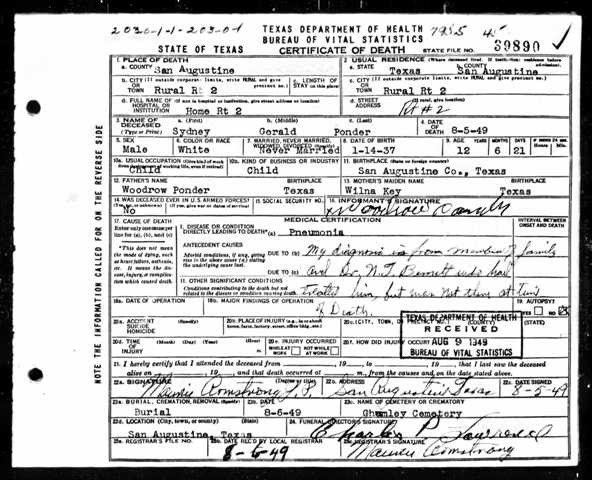 2030-1-1-203-01
TEXAS DEPARTMENT OF HEALTH
BUREAU OF VITAL STATISTICS
STATE OF TEXAS
CERTIFICATE OF DEATH
STATE FILE NO. 39890
1. PLACE OF DEATH
a. COUNTY San Augustine
2. USUAL RESIDENCE (Where deceased lived. If institution: residence before admission).
a. STATE Texas b. COUNTY San Augustine
b. CITY (If outside corporate limits, write RURAL and give precinct no.) OR TOWN Rural Rt 2
c. LENGTH OF STAY (in this place)
c. CITY (If outside corporate limits, write RURAL and give precinct no.) OR TOWN Rural Rt 2
d. FULL NAME OF (If not in hospital or institution, give street address or location) HOSPITAL OR INSTITUTION Home Rt 2
d. STREET ADDRESS (If rural, give location) Rt #2
3. NAME OF DECEASED (Type or Print)
a. (First) Sydney b. (Middle) Gerald c. (Last) Ponder
4. DATE OF DEATH 8-5-49
5. SEX Male
6. COLOR OR RACE White
7. MARRIED, NEVER MARRIED, WIDOWED, DIVORCED (Specify) Never Married
8. DATE OF BIRTH 1-14-37
9. AGE YEARS 12 MONTHS 6 DAYS 21
10a. USUAL OCCUPATION Child
10b. KIND OF BUSINESS OR INDUSTRY Child
11. BIRTHPLACE (State or foreign country) San Augustine Co., Texas
12. FATHER'S NAME BIRTHPLACE
Woodrow Ponder Texas
13. MOTHER'S MAIDEN NAME BIRTHPLACE
Wilna Key Texas
14. WAS DECEASED EVER IN U.S. ARMED FORCES? No
15. SOCIAL SECURITY NO.
16. INFORMANT'S SIGNATURE
17. CAUSE OF DEATH
Enter only one cause per line for (a), (b), and (c)
MEDICAL CERTIFICATION
INTERVAL BETWEEN ONSET AND DEATH
I. DISEASE OR CONDITION DIRECTLY LEADING TO DEATH* (a) Pneumonia
*This does not mean the mode of dying, such as heart failure, asthenia, etc. It means the disease, injury, or complication which caused death.
ANTECEDENT CAUSES
Morbid conditions, if any, giving rise to the above cause (a) stating the underlying cause last.
DUE TO (b) My diagnosis is from members of family
DUE TO (c) and Dr. N.T. Bennett who had
II. OTHER SIGNIFICANT CONDITIONS
Conditions contributing to the death but not related to the disease or condition causing death.
treated him, but was not there at time
of Death.
18a. DATE OF OPERATION
18b. MAJOR FINDINGS OF OPERATION
19. AUTOPSY? YES NO
20a. ACCIDENT SUICIDE HOMICIDE (Specify)
20b. PLACE OF INJURY
20c. (CITY, TOWN, OR PRECINCT NO.) (COUNTY) (STATE)
TEXAS DEPARTMENT OF HEALTH
RECEIVED
AUG 9 1949
BUREAU OF VITAL STATISTICS
20d. TIME OF INJURY (Month) (Day) (Year) (Hour)
20e. INJURY OCCURRED WHILE AT WORK NOT WHILE AT WORK
20f. HOW DID INJURY OCCUR?
21. I hereby certify that I attended the deceased from , 19 , to , 19 , that I last saw the deceased
alive on , 19 , and that death occurred at m., from the causes and on the date stated above.
22a. SIGNATURE (Degree or title)
22b. ADDRESS San Augustine Texas
22c. DATE SIGNED 8-5-49
23a. BURIAL, CREMATION, REMOVAL (Specify) Burial
23b. DATE 8-6-49
23c. NAME OF CEMETERY OR CREMATORY Chumley Cemetery
23d. LOCATION (City, town, or county) (State) San Augustine, Texas
24. FUNERAL DIRECTOR'S SIGNATURE
25a. REGISTRAR'S FILE NO.
25b. DATE REC'D BY LOCAL REGISTRAR 8-6-49
25c. REGISTRAR'S SIGNATURE
NOTE THE INFORMATION CALLED FOR ON THE REVERSE SIDE